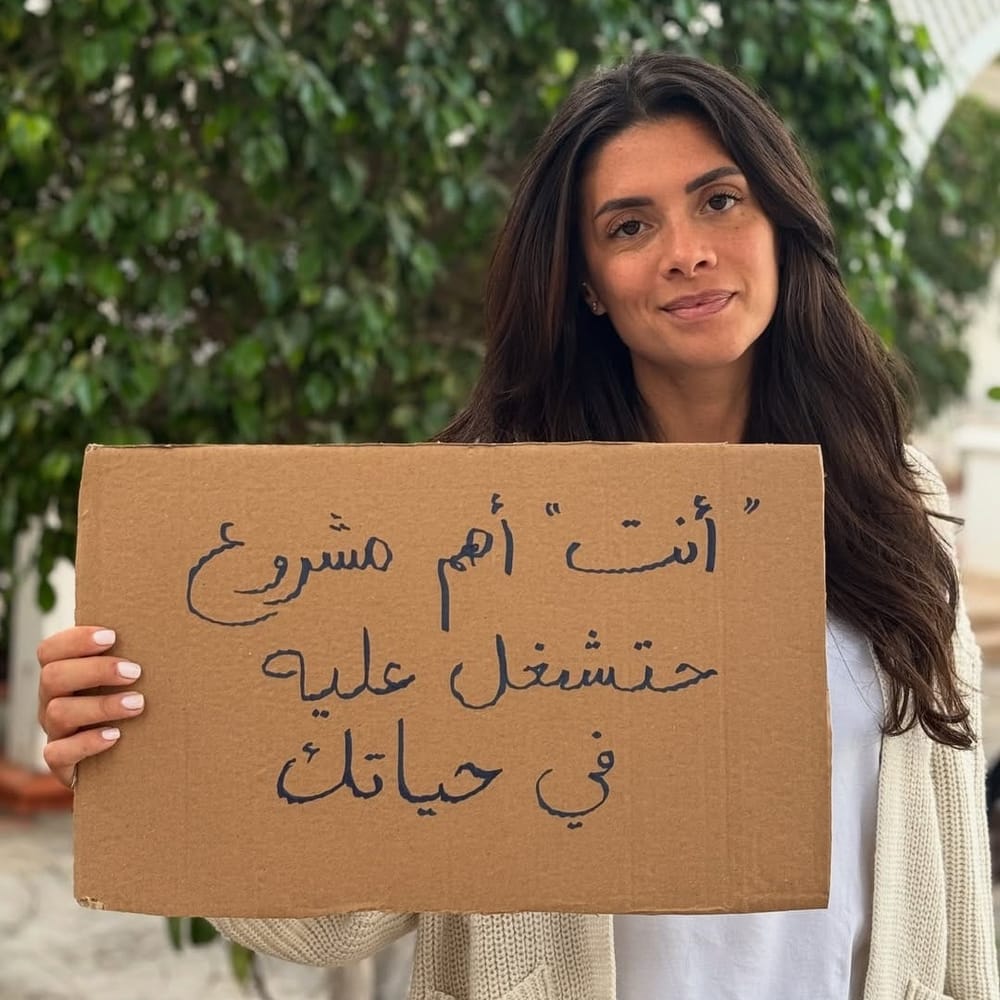 "أنت" أهم مشروع
حتشتغل عليه
في حياتك